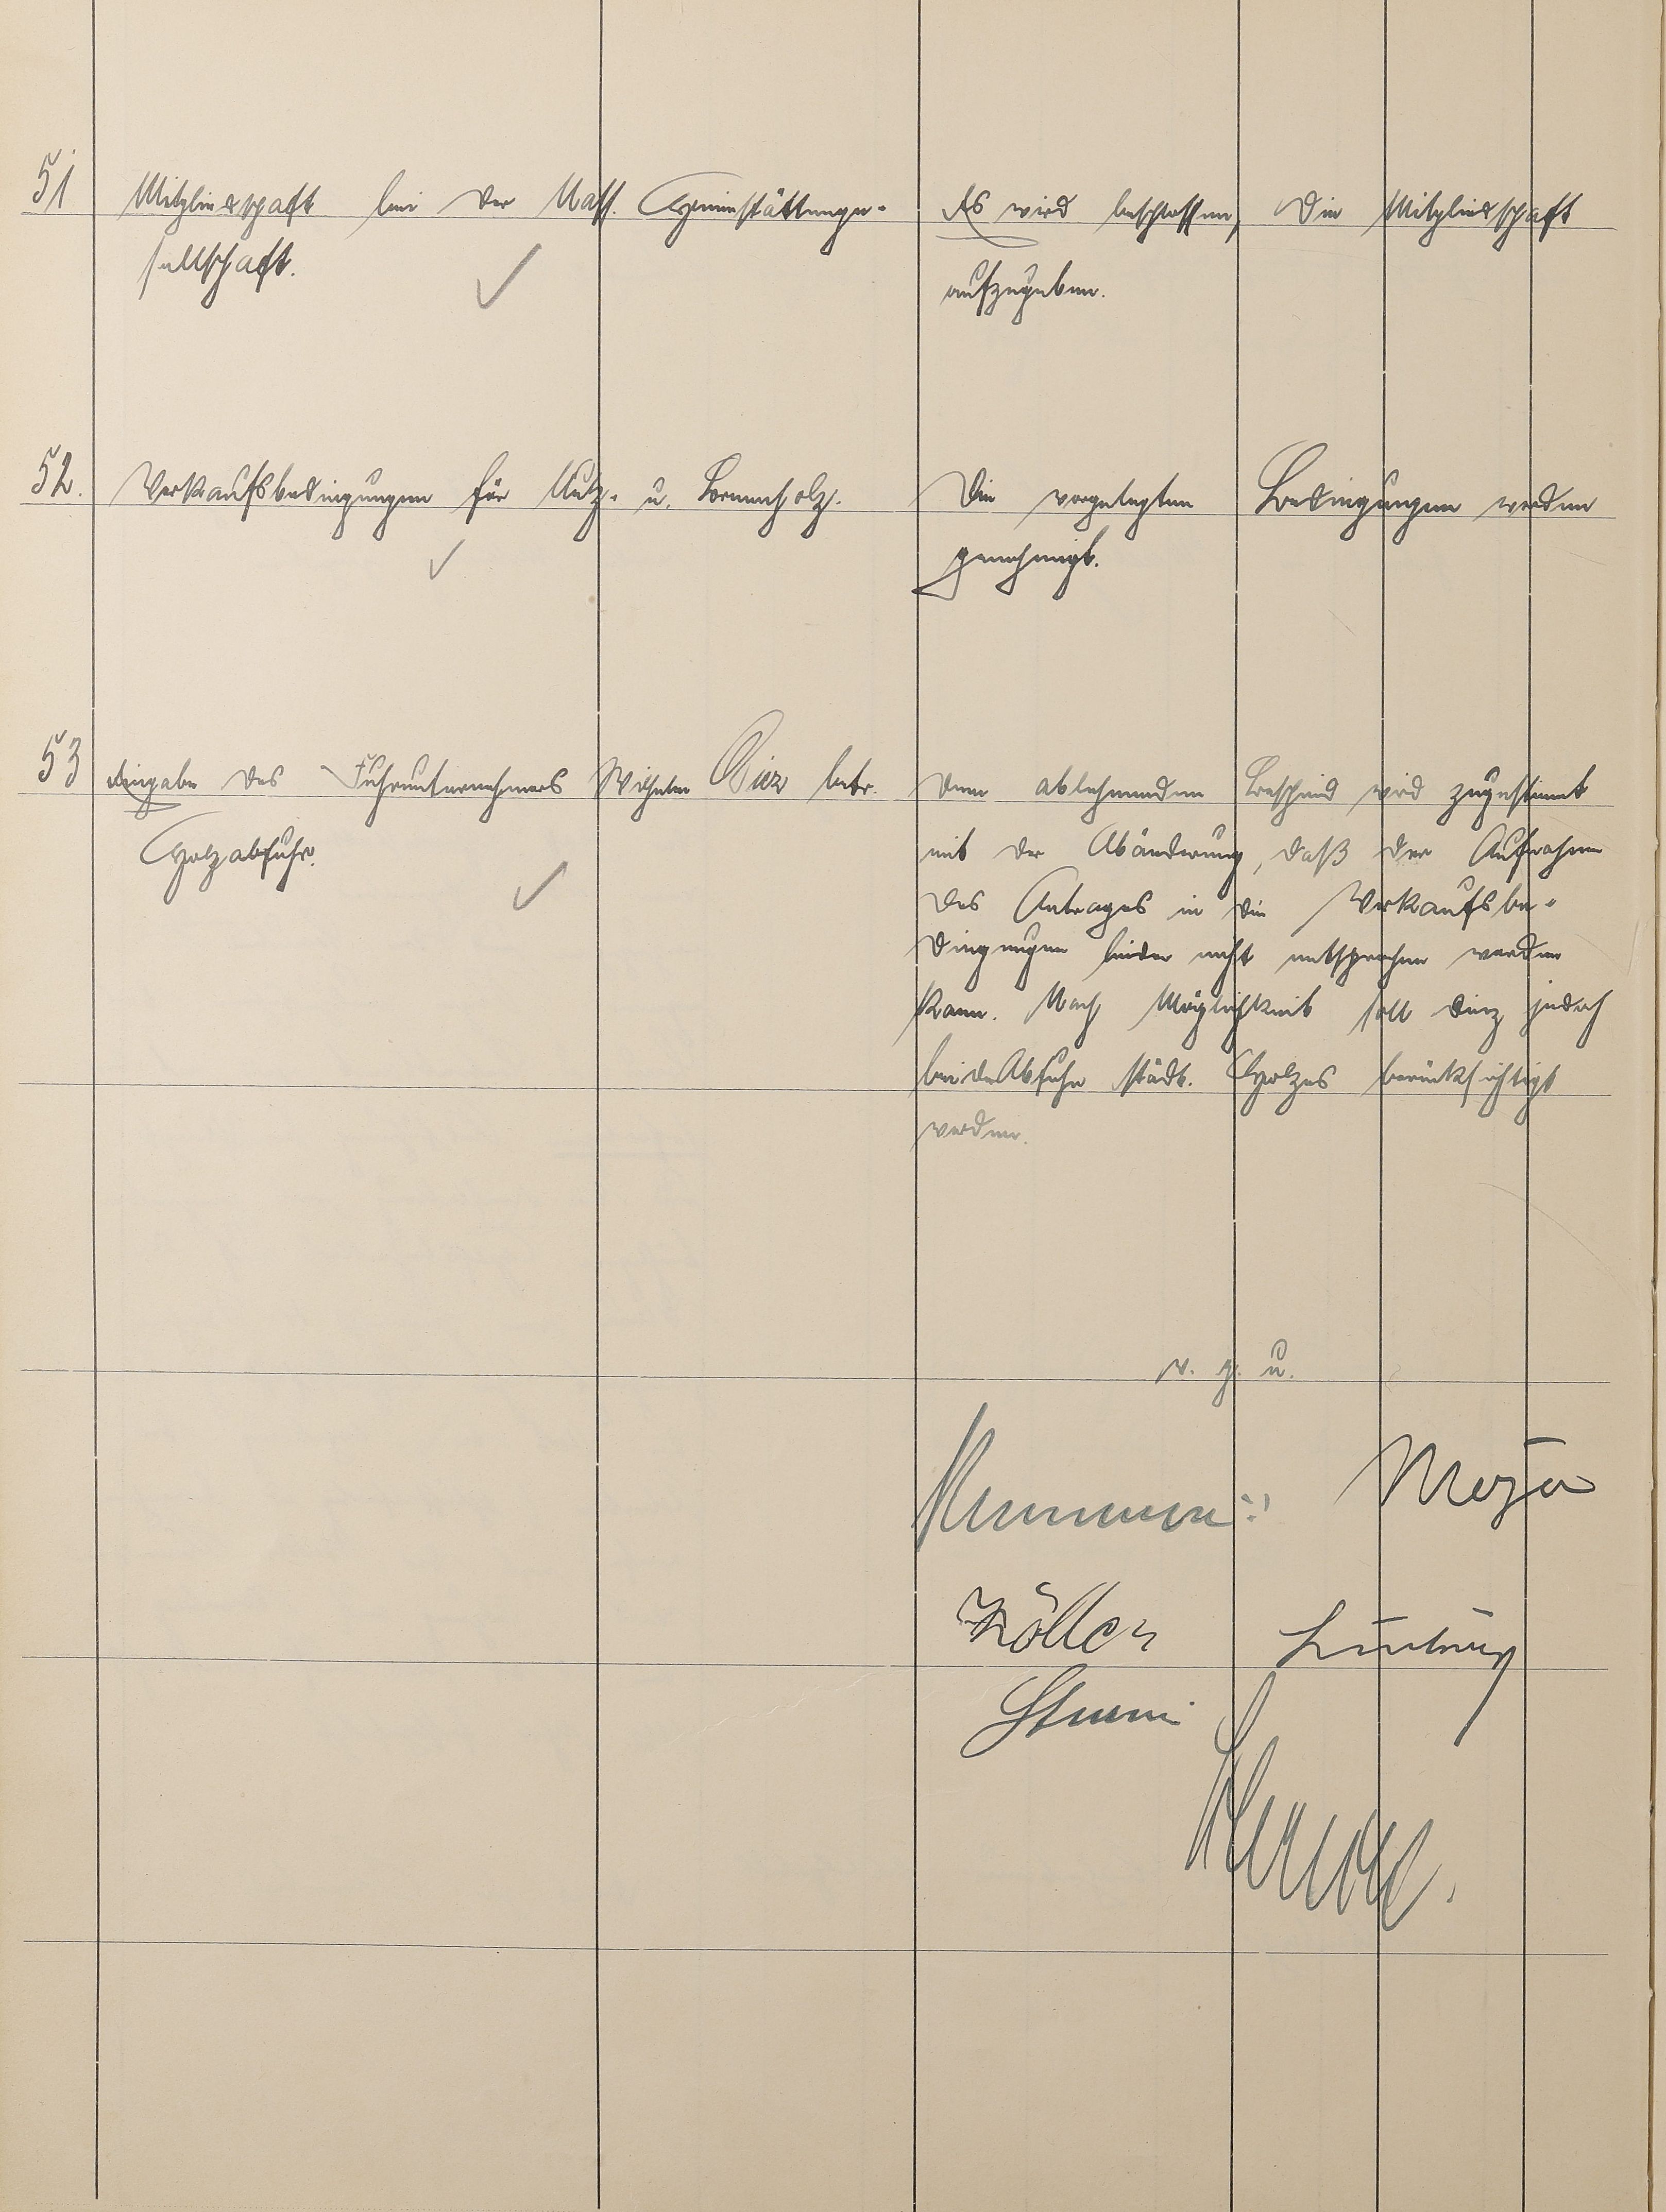 51 Mitgliedschaft bei der Nass. Heimstättenge-
sellschaft. ✓
Es wird beschlossen, die Mitgliedschaft
aufzugeben.
52. Verkaufsbedingungen für Nutz- u. Brennholz.
✓
Die vorgelegten Bedingungen werden
genehmigt.
53 Eingabe des Fuhrunternehmers Wilhelm betr.
Holzabfuhr. ✓
Dem ablehnenden Bescheid wird zugestimmt
mit der Abänderung, daß der Aufnahme
des Antrages in die Verkaufsbe-
dingungen leider nicht entsprochen werden
kann. Nach Möglichkeit soll jedoch
bei der Abfuhr städt. Holzes berücksichtigt
werden.
v. g. u.
Köller
Sturm